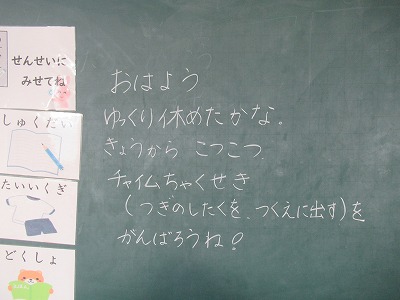 せんせいに
みせてね
しゅくだい
たいいくぎ
どくしょ
おはよう
ゆっくり休めたかな。
きょうから こつこつ
チャイムちゃくせき
(つぎのしたくを、つくえに出す)を
がんばろうね!